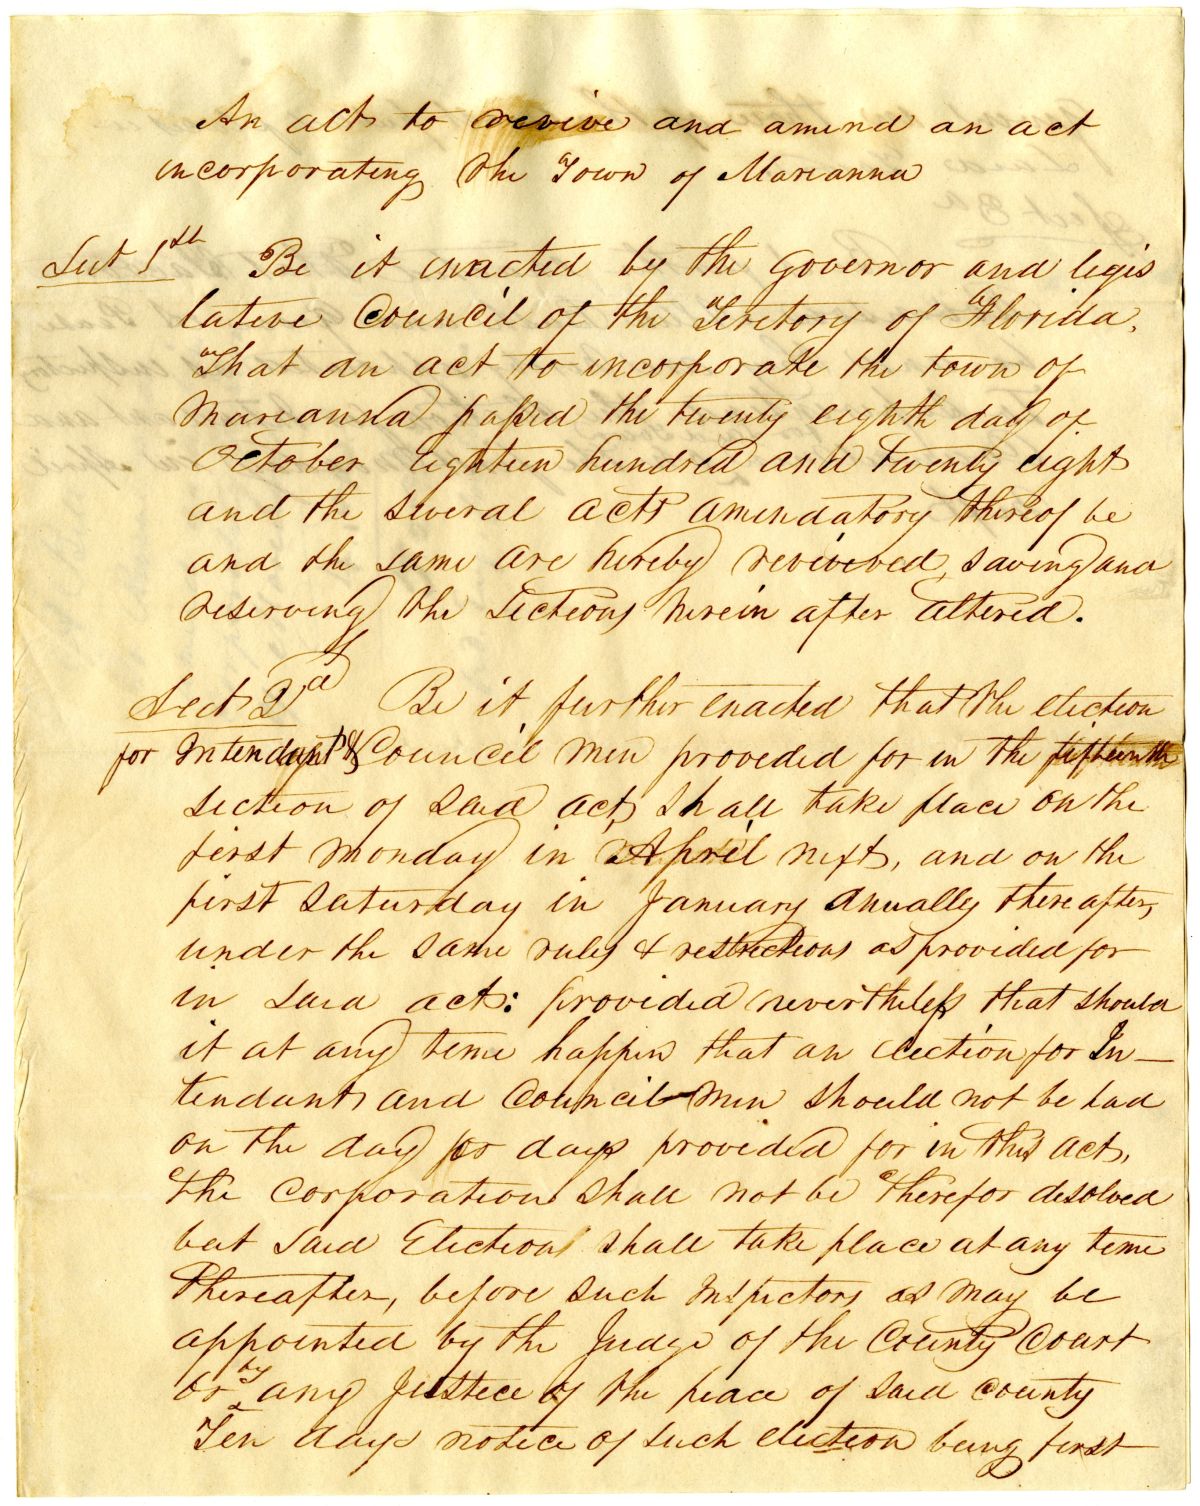 An act to revive and amend an act
incorporating the Town of Marianna
Sect 1st Be it enacted by the Governor and legis
lative Council of the Teretory of Florida,
That an act to incorporate the town of
Marianna passed the twenty eighth day of
October Eighteen hundred and twenty eight
and the several acts amendatory thereof be
and the same are hereby reviveved, saving and
reserving the Sections herein after altered.
Sect 2d Be it further enacted that the election
for Intendant & Council men provided for in the fifteenth
section of said act, shall take place on the
first Monday in April next, and on the
first Saturday in January anually thereafter,
under the same rules & restrictions as provided for
in said act: provided nevertheless that should
it at any time happen that an election for In-
tendant and Council-men should not be had
on the day or days provided for in this act,
the Corporation shall not be therefor desolved
but said Election shall take place at any time
Thereafter, before such Inspectors as may be
appointed by the Judge of the County Court
or by any Justice of the peace of said County
Ten days notice of such election being first